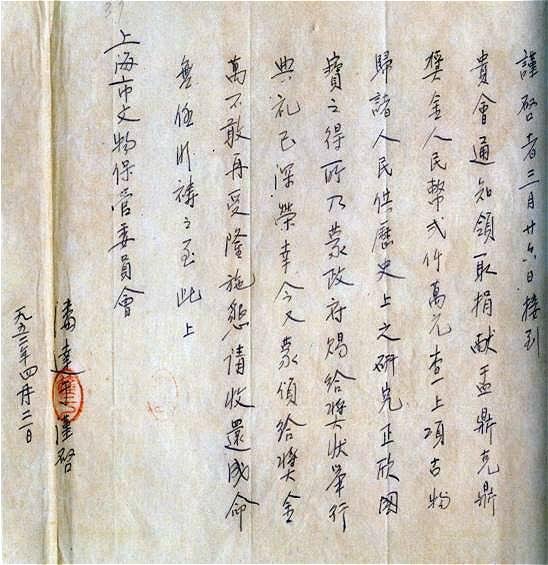 謹啓者三月廿六日接到
貴會通知領取捐献盂鼎克鼎
奬金人民幣弍仟萬元查上項古物
歸諸人民供歷史上之研究正欣國
寶之得所乃蒙政府賜給奬狀舉行
典礼已深榮幸今又蒙頒給奬金
萬不敢再受隆施懇請收還成命
無任盼禱之至此上
上海市文物保管委員會
潘達于謹啓
一九五二年四月二日
37